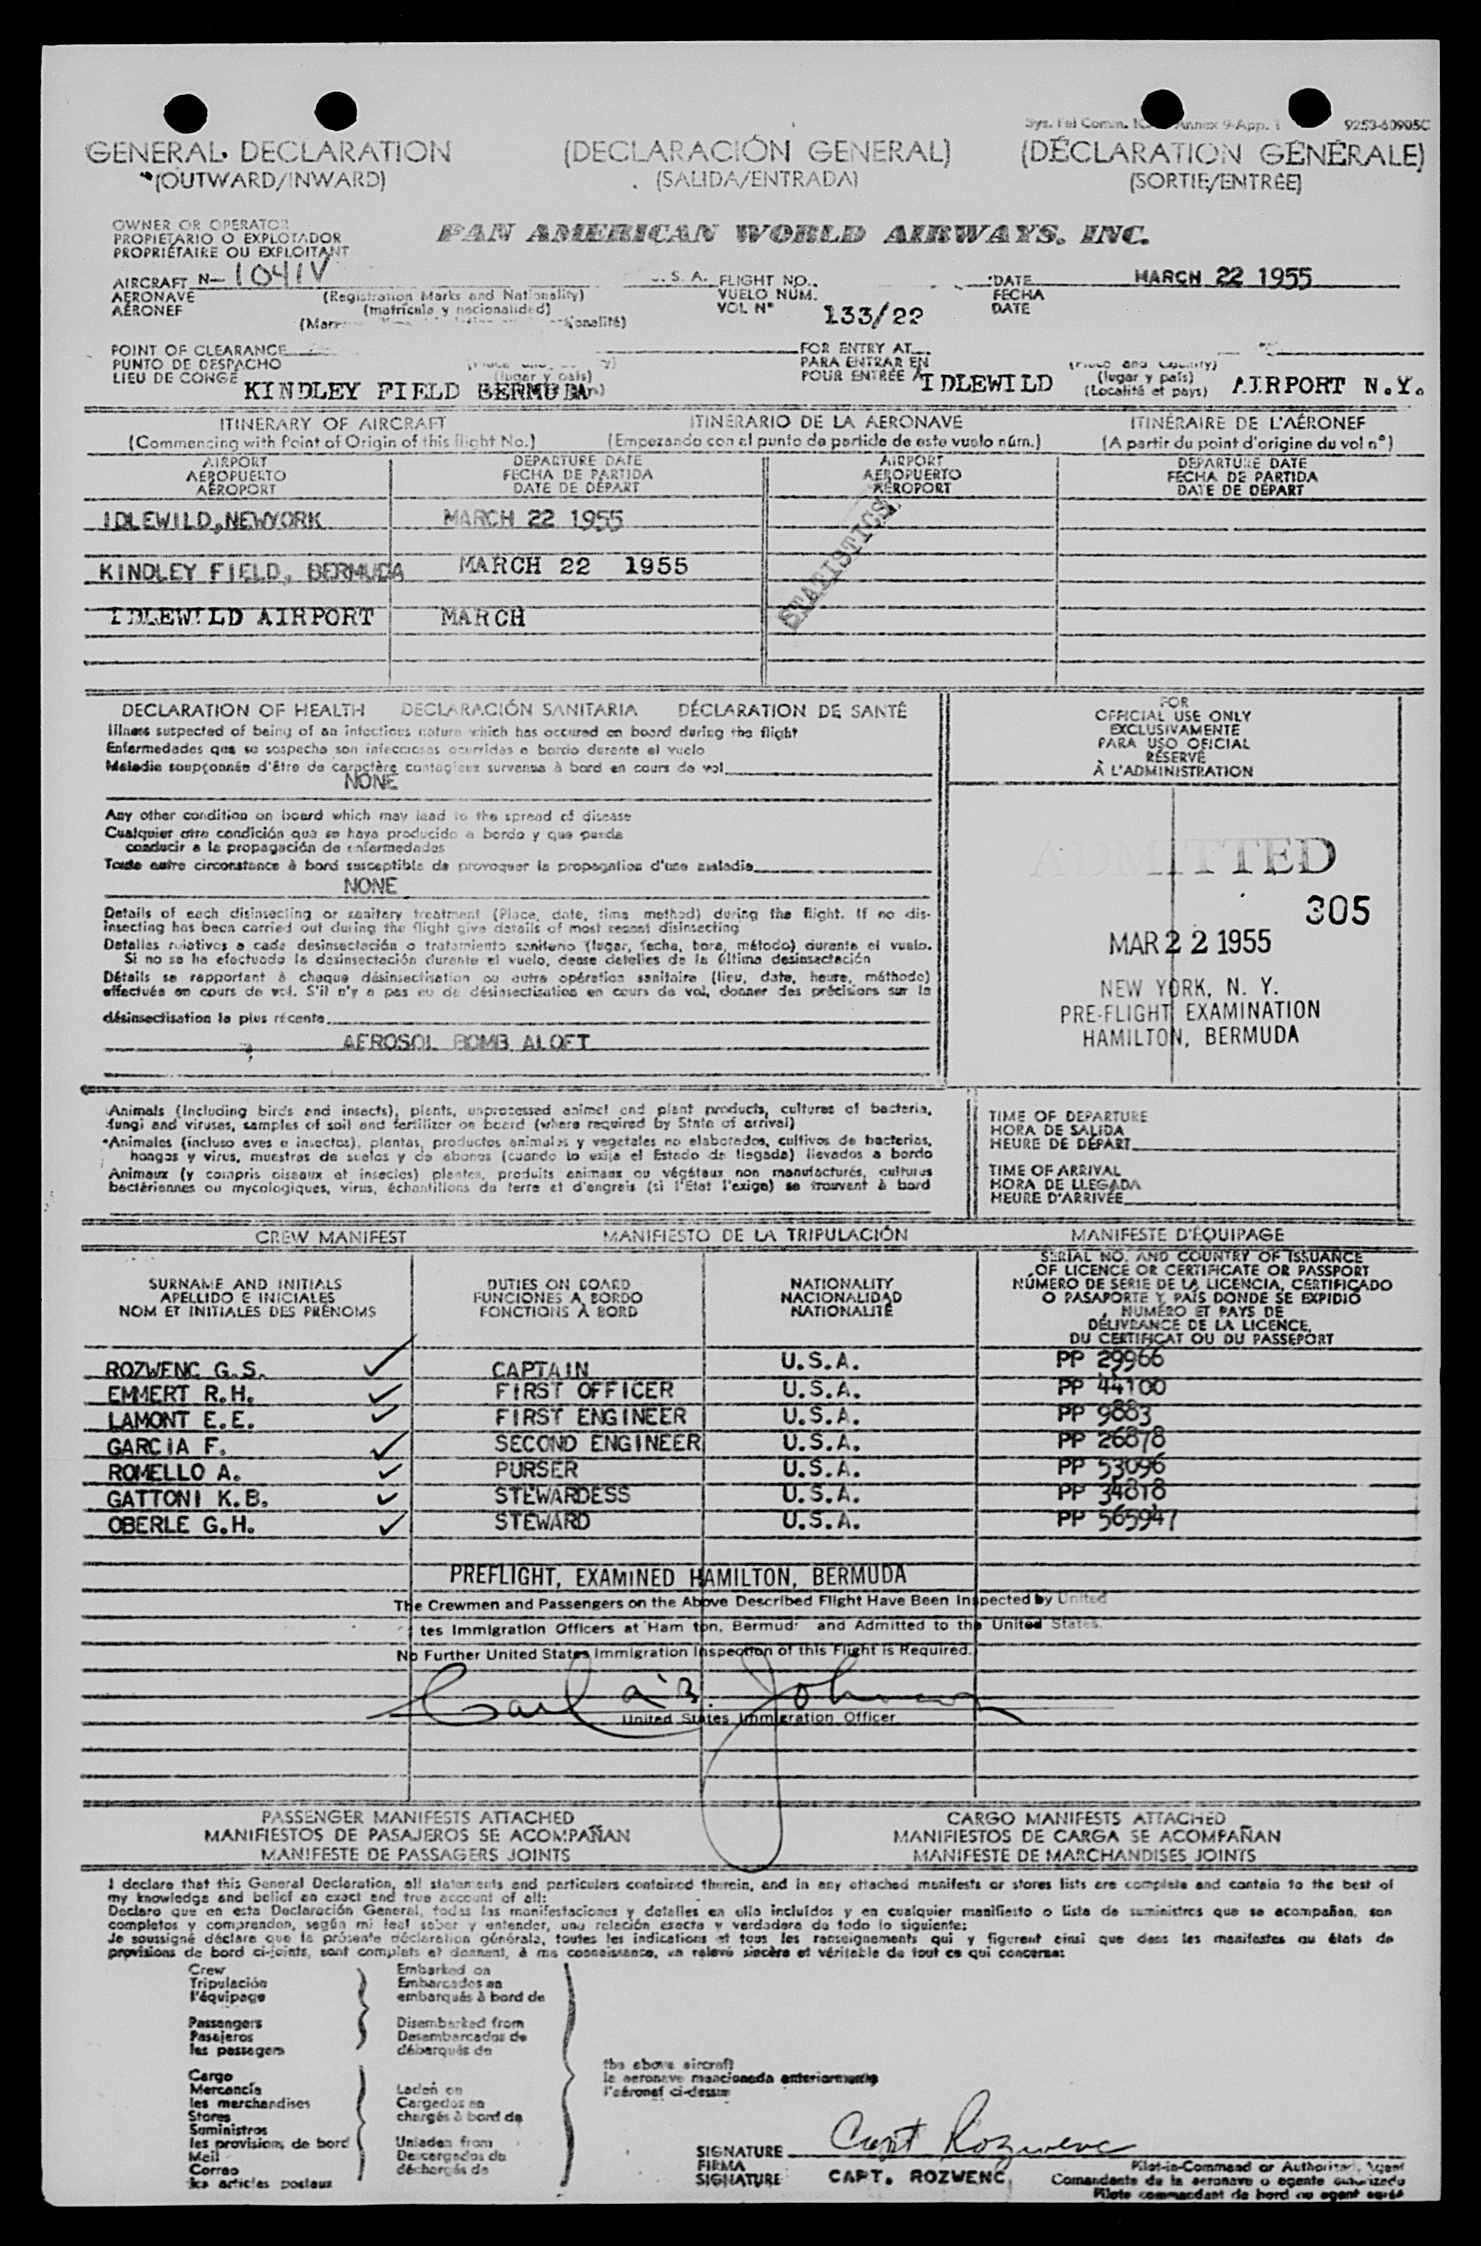 9253-60905C
GENERAL DECLARATION (DECLARACIÓN GENERAL) (DÉCLARATION GÉNÉRALE)
(OUTWARD/INWARD) (SALIDA/ENTRADA) (SORTIE/ENTRÉE)
OWNER OR OPERATOR
PROPIETARIO O EXPLOTADOR
PROPRIÉTAIRE OU EXPLOITANT
PAN AMERICAN WORLD AIRWAYS, INC.
AIRCRAFT N-1041V U.S.A. FLIGHT NO. DATE MARCH 22 1955
AERONAVE (Registration Marks and Nationality) VUELO NUM. FECHA
AÉRONEF (matrícula y nacionalidad) VOL Nº 133/22 DATE
POINT OF CLEARANCE FOR ENTRY AT
PUNTO DE DESPACHO PARA ENTRAR EN (Place and Country)
LIEU DE CONGÉ KINDLEY FIELD BERMUDA (lugar y país) POUR ENTRÉE À IDLEWILD (lugar y país) AIRPORT N.Y.
(Localité et pays)
ITINERARY OF AIRCRAFT ITINERARIO DE LA AERONAVE ITINÉRAIRE DE L'AÉRONEF
(Commencing with Point of Origin of this flight No.) (Empezando con el punto de partida de este vuelo núm.) (A partir du point d'origine du vol nº)
AIRPORT DEPARTURE DATE AIRPORT DEPARTURE DATE
AEROPUERTO FECHA DE PARTIDA AEROPUERTO FECHA DE PARTIDA
AÉROPORT DATE DE DÉPART AÉROPORT DATE DE DÉPART
IDLEWILD, NEWYORK MARCH 22 1955
STATISTICS
KINDLEY FIELD, BERMUDA MARCH 22 1955
IDLEWILD AIRPORT MARCH
DECLARATION OF HEALTH DECLARACIÓN SANITARIA DÉCLARATION DE SANTÉ
Illness suspected of being of an infectious nature which has occured on board during the flight
Enfermedades que se sospecha son infecciosas ocurridas a bordo durante el vuelo
Maladie soupçonnée d'être de caractère contagieux survenue à bord en cours de vol
NONE
Any other condition on board which may lead to the spread of disease
Cualquier otra condición que se haya producido a bordo y que pueda
conducir a la propagación de enfermedades
Toute autre circonstance à bord susceptible de provoquer la propagation d'une maladie
NONE
Details of each disinsecting or sanitary treatment (Place, date, time method) during the flight. If no dis-
insecting has been carried out during the flight give details of most recent disinsecting
Detalles relativos a cada desinsectación o tratamiento sanitario (lugar, fecha, hora, método) durante el vuelo.
Si no se ha efectuado la desinsectación durante el vuelo, dense detalles de la última desinsectación
Détails se rapportant à chaque désinsectisation ou autre opération sanitaire (lieu, date, heure, méthode)
effectuée en cours de vol. S'il n'y a pas eu de désinsectisation en cours de vol, donner des précisions sur la
désinsectisation la plus récente
AEROSOL BOMB ALOFT
FOR
OFFICIAL USE ONLY
EXCLUSIVAMENTE
PARA USO OFICIAL
RÉSERVÉ
À L'ADMINISTRATION
ADMITTED
305
MAR 22 1955
NEW YORK, N. Y.
PRE-FLIGHT EXAMINATION
HAMILTON, BERMUDA
Animals (Including birds and insects), plants, unprocessed animal and plant products, cultures of bacteria,
fungi and viruses, samples of soil and fertilizer on board (where required by State of arrival)
Animales (incluso aves e insectos), plantas, productos animales y vegetales no elaborados, cultivos de bacterias,
hongos y virus, muestras de suelos y de abonos (cuando lo exija el Estado de llegada) llevados a bordo
Animaux (y compris oiseaux et insectes) plantes, produits animaux ou végétaux non manufacturés, cultures
bactériennes ou mycologiques, virus, échantillons de terre et d'engrais (si l'État l'exige) se trouvent à bord
TIME OF DEPARTURE
HORA DE SALIDA
HEURE DE DÉPART
TIME OF ARRIVAL
HORA DE LLEGADA
HEURE D'ARRIVÉE
CREW MANIFEST MANIFIESTO DE LA TRIPULACIÓN MANIFESTE D'ÉQUIPAGE
SURNAME AND INITIALS
APELLIDO E INICIALES
NOM ET INITIALES DES PRÉNOMS
DUTIES ON BOARD
FUNCIONES A BORDO
FONCTIONS À BORD
NATIONALITY
NACIONALIDAD
NATIONALITÉ
SERIAL NO. AND COUNTRY OF ISSUANCE
OF LICENCE OR CERTIFICATE OR PASSPORT
NÚMERO DE SERIE DE LA LICENCIA, CERTIFICADO
O PASAPORTE Y PAÍS DONDE SE EXPIDIÓ
NUMÉRO ET PAYS DE
DÉLIVRANCE DE LA LICENCE,
DU CERTIFICAT OU DU PASSEPORT
ROZWENC G.S. ✓ CAPTAIN U.S.A. PP 29966
EMMERT R.H. ✓ FIRST OFFICER U.S.A. PP 44100
LAMONT E.E. ✓ FIRST ENGINEER U.S.A. PP 9883
GARCIA F. ✓ SECOND ENGINEER U.S.A. PP 26878
ROMELLO A. ✓ PURSER U.S.A. PP 53096
GATTONI K.B. ✓ STEWARDESS U.S.A. PP 34818
OBERLE G.H. ✓ STEWARD U.S.A. PP 565947
PREFLIGHT, EXAMINED HAMILTON, BERMUDA
The Crewmen and Passengers on the Above Described Flight Have Been Inspected by United
tes Immigration Officers at Ham ton, Bermud and Admitted to the United States.
No Further United States Immigration Inspection of this Flight is Required.
Carl A.B. Johnson
United States Immigration Officer
PASSENGER MANIFESTS ATTACHED CARGO MANIFESTS ATTACHED
MANIFIESTOS DE PASAJEROS SE ACOMPAÑAN MANIFIESTOS DE CARGA SE ACOMPAÑAN
MANIFESTE DE PASSAGERS JOINTS MANIFESTE DE MARCHANDISES JOINTS
I declare that this General Declaration, all statements and particulars contained therein, and in any attached manifests or stores lists are complete and contain to the best of
my knowledge and belief an exact and true account of all:
Declaro que en esta Declaración General, todas las manifestaciones y detalles en ella incluídos y en cualquier manifiesto o lista de suministros que se acompañan, son
completos y comprenden, según mi leal saber y entender, una relación exacta y verdadera de todo lo siguiente:
Je soussigné déclare que la présente déclaration générale, toutes les indications et tous les renseignements qui y figurent ainsi que dans les manifestes ou états de
provisions de bord ci-joints, sont complets et donnent, à ma connaissance, un relevé sincère et véritable de tout ce qui concerne:
Crew Embarked on
Tripulación Embarcados en
l'équipage embarqués à bord de
Passengers Disembarked from
Pasajeros Desembarcados de
les passagers débarqués de
Cargo
Mercancía Laden on
les marchandises Cargados en
Stores chargés à bord de
Suministros
les provisions de bord Unladen from
Mail Descargados de
Correo déchargés de
les articles postaux
the above aircraft
la aeronave mencionada anteriormente
l'aéronef ci-dessus
SIGNATURE Capt Rozwenc
FIRMA Pilot-in-Command or Authorized Agent
SIGNATURE CAPT. ROZWENC, Comandante de la aeronave o agente autorizado
Pilote commandant de bord ou agent agréé